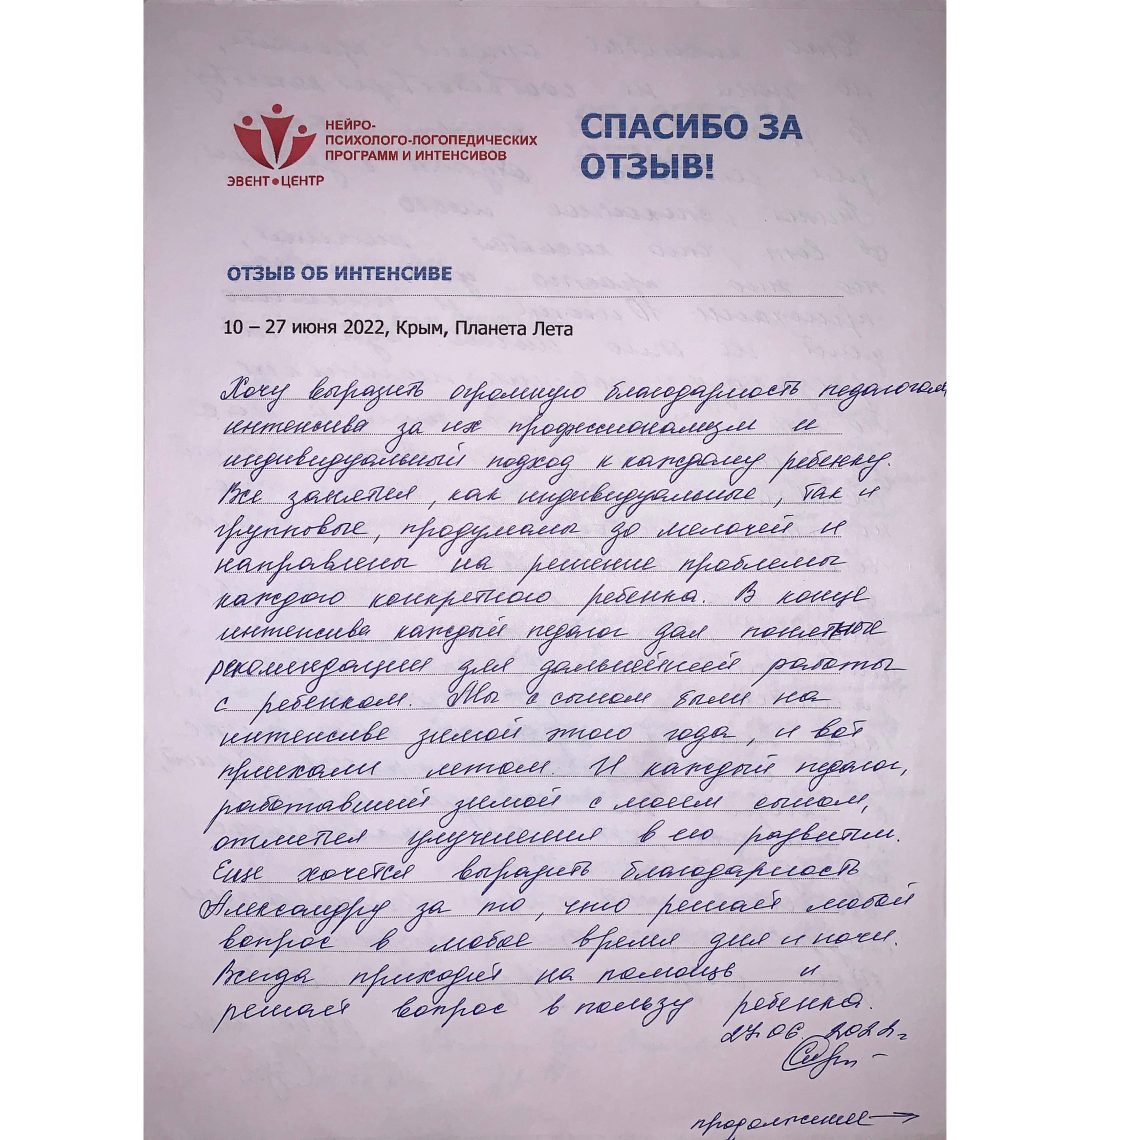 НЕЙРО-
ПСИХОЛОГО-ЛОГОПЕДИЧЕСКИХ
ПРОГРАММ И ИНТЕНСИВОВ
ЭВЕНТ•ЦЕНТР
СПАСИБО ЗА
ОТЗЫВ!
ОТЗЫВ ОБ ИНТЕНСИВЕ
10 – 27 июня 2022, Крым, Планета Лета
Хочу выразить огромную благодарность педагогам
интенсива за их профессионализм и
индивидуальный подход к каждому ребенку.
Все занятия, как индивидуальные, так и
групповые, продуманы до мелочей и
направлены на решение проблемы
каждого конкретного ребенка. В конце
интенсива каждый педагог дал понятные
рекомендации для дальнейшей работы
с ребенком. Мы с сыном были на
интенсиве зимой этого года, и вот
приехали летом. И каждый педагог,
работавший зимой с моем сыном,
отметил улучшения в его развитии.
Еще хочется выразить благодарность
Александру за то, что решает любой
вопрос в любое время дня и ночи.
Всегда приходит на помощь и
решает вопрос в пользу ребенка.
27.06.2022г
продолжение →